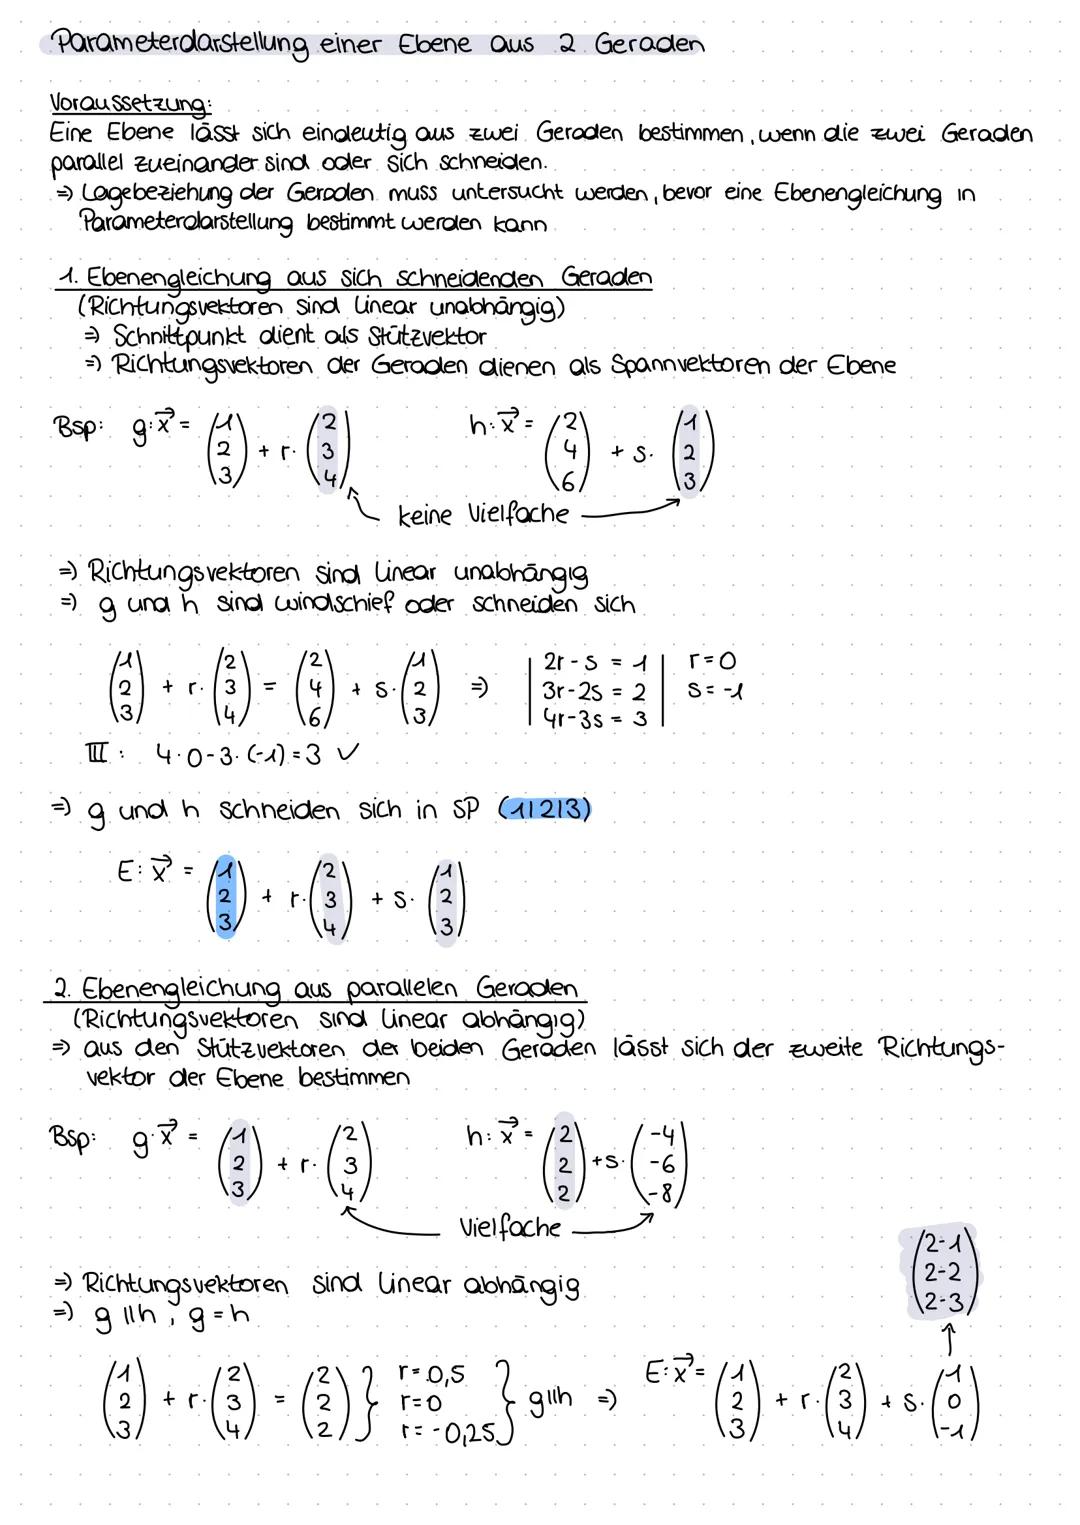 Parameterdarstellung einer Ebene aus 2 Geraden
Voraussetzung:
Eine Ebene lässt sich eindeutig aus zwei Geraden bestimmen, wenn die zwei Geraden
parallel zueinander sind oder sich schneiden.
⇒ Lagebeziehung der Geraden muss untersucht werden, bevor eine Ebenengleichung in
Parameterdarstellung bestimmt werden kann
1. Ebenengleichung aus sich schneidenden Geraden
(Richtungsvektoren sind linear unabhängig)
⇒ Schnittpunkt dient als Stützvektor
⇒ Richtungsvektoren der Geraden dienen als Spannvektoren der Ebene
Bsp: g: x⃗ = (1 2 3) + r· (2 3 4) h: x⃗ = (2 4 6) + s· (1 2 3)
keine Vielfache
⇒ Richtungsvektoren sind linear unabhängig
⇒ g und h sind windschief oder schneiden sich
(1 2 3) + r· (2 3 4) = (2 4 6) + s· (1 2 3) ⇒ | 2r - s = 1 | r = 0
| 3r - 2s = 2 | s = -1
| 4r - 3s = 3 |
III: 4·0-3·(-1)=3 ✓
⇒ g und h schneiden sich in SP (1|2|3)
E: x⃗ = (1 2 3) + r· (2 3 4) + s· (1 2 3)
2. Ebenengleichung aus parallelen Geraden
(Richtungsvektoren sind linear abhängig)
⇒ aus den Stützvektoren der beiden Geraden lässt sich der zweite Richtungs-
vektor der Ebene bestimmen
Bsp: g: x⃗ = (1 2 3) + r· (2 3 4) h: x⃗ = (2 2 2) + s· (-4 -6 -8)
Vielfache
⇒ Richtungsvektoren sind linear abhängig
⇒ g ∥ h, g = h
(2-1 2-2 2-3)
↑
(1 2 3) + r· (2 3 4) = (2 2 2) } r = 0,5 r = 0 r = -0,25 } g∥h ⇒ E: x⃗ = (1 2 3) + r· (2 3 4) + s· (1 0 -1)